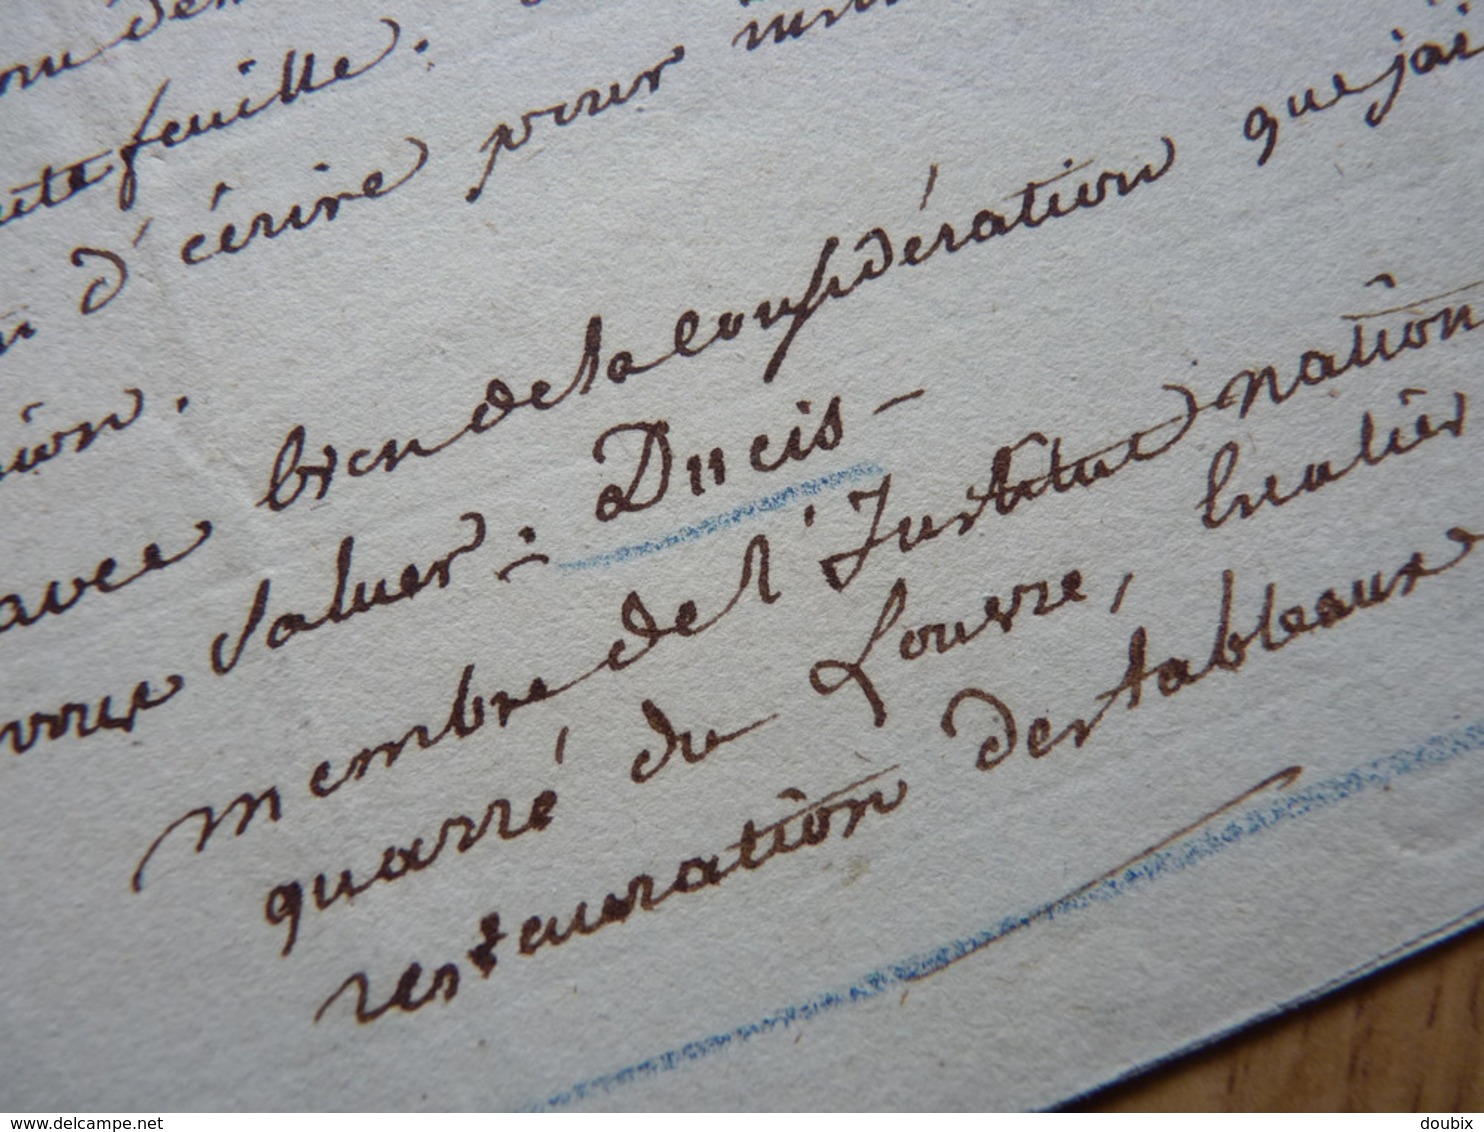 feuille.
d'écrire pour
avec bien de la considération que j'ai
vous saluer. Ducis
membre de l'Institut nation
quarré du Louvre, l'atelier
restauration des tableaux
www.delcampe.net
doubix